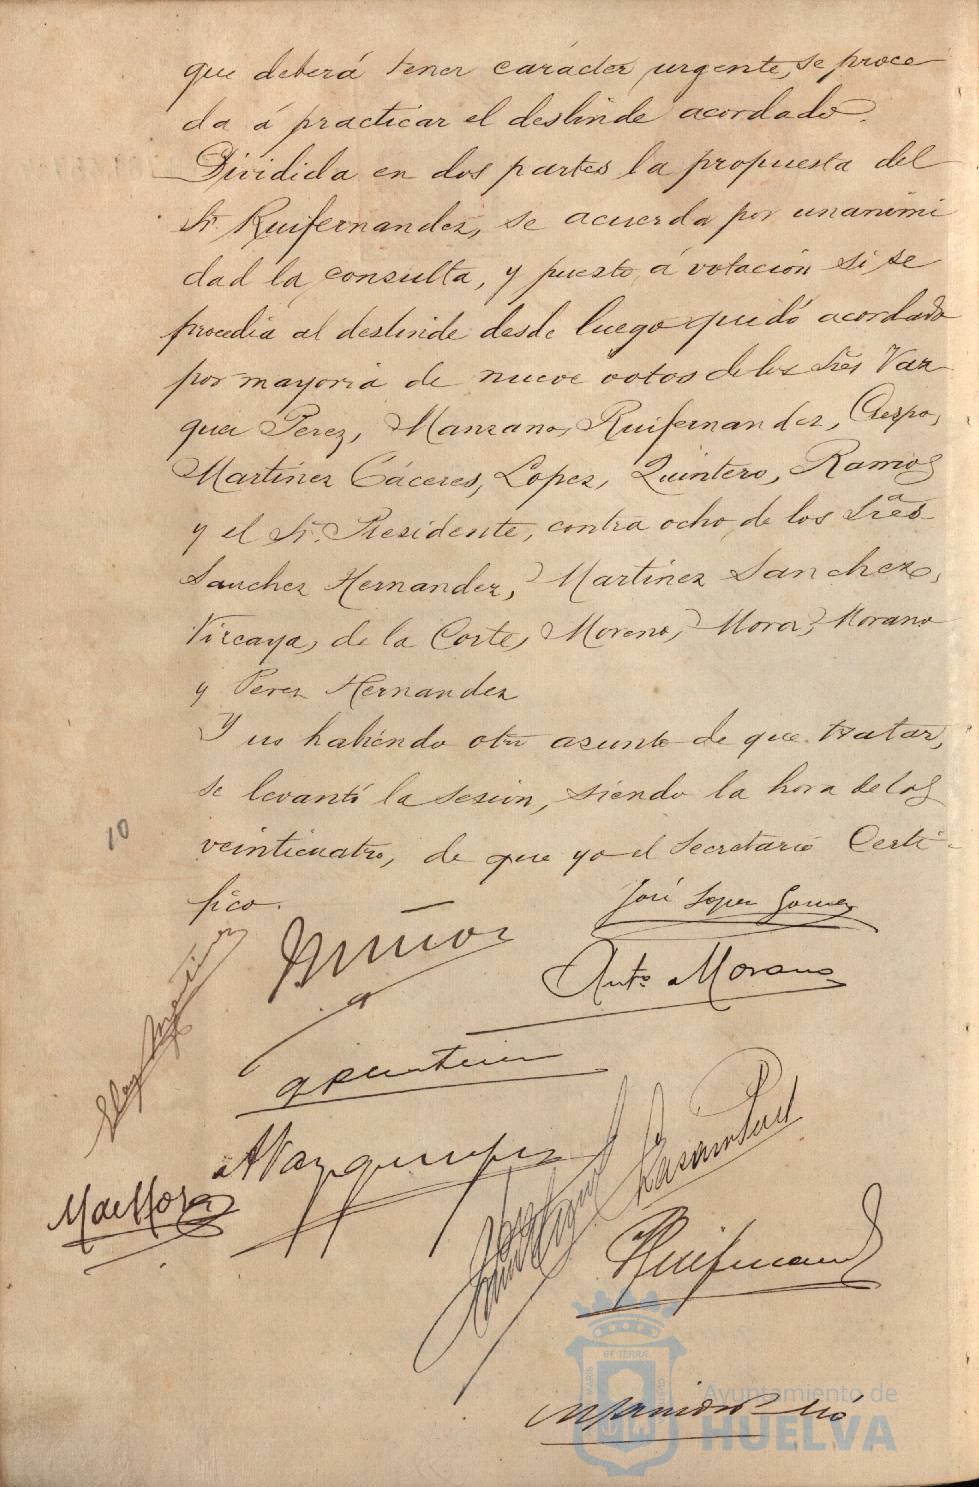 que deberá tener carácter urgente, se proce
da á practicar el deslinde acordado.
Dividida en dos partes la propuesta del
Sr. Ruifernandez, se acuerda por unanimi
dad la consulta, y puesto á votación si se
procedia al deslinde desde luego quedó acordado
por mayoria de nueve votos de los Sres Vaz
quez Perez, Manzano, Ruifernandez, Crespo,
Martinez Cáceres, Lopez, Quintero, Ramos
y el Sr. Presidente, contra ocho de los Sres
Sanchez Hernandez, Martinez Sanchez,
Vizcaya, de la Corte, Moreno, Mora, Morano
y Perez Hernandez
Y no habiendo otro asunto de que tratar,
se levantó la sesión, siendo la hora de las
veinticuatro, de que yo el Secretario Certi-
fico.
10
José Lopez Gomez
Muñoz
Antº Morano
Martinez
A Vazquez Perez
M de Mora
Ruifernandez
ET TERRAE
Ayuntamiento de
HUELVA